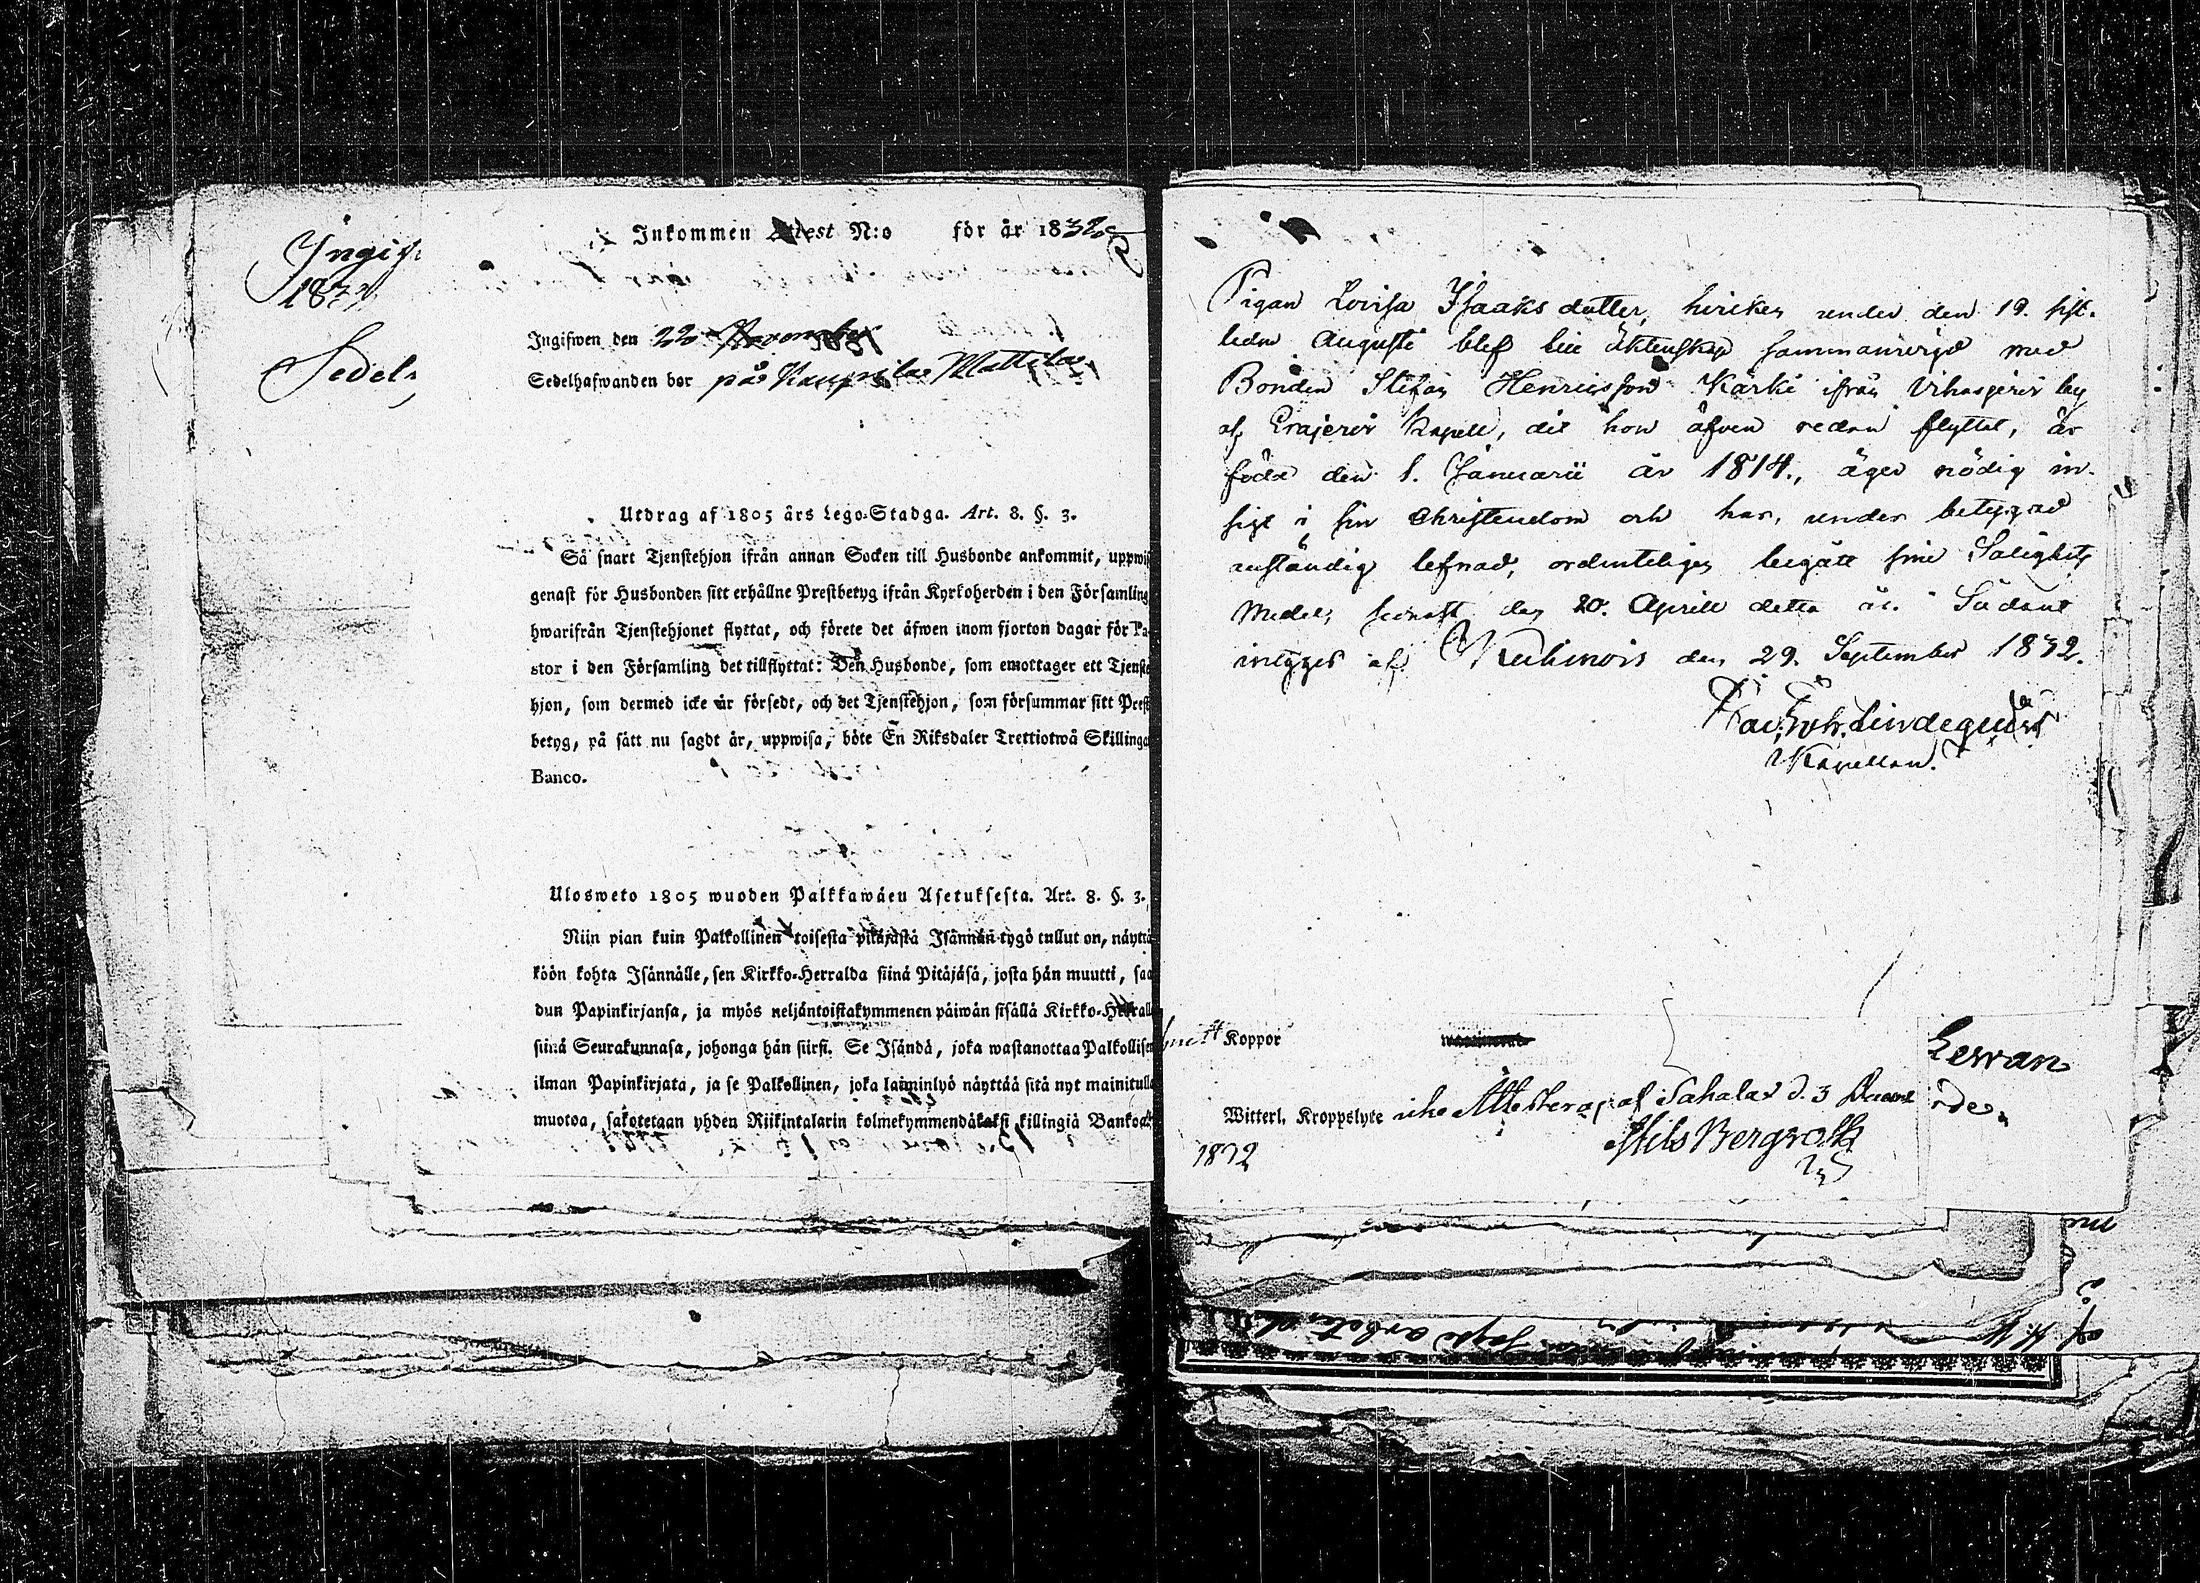 Ingif
183
Sedel
Inkommen Attest N:o för år 1832
Ingifwen den 22 November
Sedelhafwanden bor på Kauppila Mattila
Utdrag af 1805 års Lego-Stadga. Art. 8. §. 3.
Så snart Tjenstehjon ifrån annan Socken till Husbonde ankommit, uppwis
genast för Husbonden sitt erhållne Prestbetyg ifrån Kyrkoherden i den Församling
hwarifrån Tjenstehjonet flyttat, och förete det äfwen inom fjorton dagar för Pa-
stor i den Församling det tillflyttat: Den Husbonde, som emottager ett Tjenste
hjon, som dermed icke är försedt, och det Tjenstehjon, som försummar sitt Prest
betyg, på sätt nu sagdt är, uppwisa, böte En Riksdaler Trettiotwå Skillinga
Banco.
Ulosweto 1805 wuoden Palkkawäen Asetuksesta. Art. 8. §. 3.
Niin pian kuin Palkollinen toisesta pitäjästä Isännän tygö tullut on, näyttä
köön kohta Isännälle, sen Kirkko-Herralda siinä Pitäjäsä, josta hän muutti, saa
dun Papinkirjansa, ja myös neljäntoistakymmenen päiwän sisällä Kirkko-Herralle
siinä Seurakunnasa, johonga hän siirsi. Se Isändä, joka wastanottaa Palkollisen
ilman Papinkirjata, ja se Palkollinen, joka laiminlyö näyttää sitä nyt mainitulla
muotoa, sakotetaan yhden Riikintalarin kolmekymmendäkaksi killingiä Bankoa
Pigan Lovisa Isaaksdotter, hvilken under den 19. sist-
ledne Augusti blef till äktenskap sammanvigd med
Bonden Stefan Henricsson Kärki ifrån Vihasjervi by
af Erajervi Kapell, dit hon äfven redan flyttat, är
född den 1. Januarii år 1814., äger nödig in-
sigt i sin Christendom och har, under betygad
anständig lefnad, ordenteligen begått sine Salighets
Medel, senast den 20. Aprill detta år. Sådant
intygas af Kuhmois den 29. September 1832.
Joh. Lindeqvist
Kapellan.
Koppor
Lewan
Witterl. Kroppslyte icke Attesteras af Sahalax d. 3
1832
Nils Bergroth